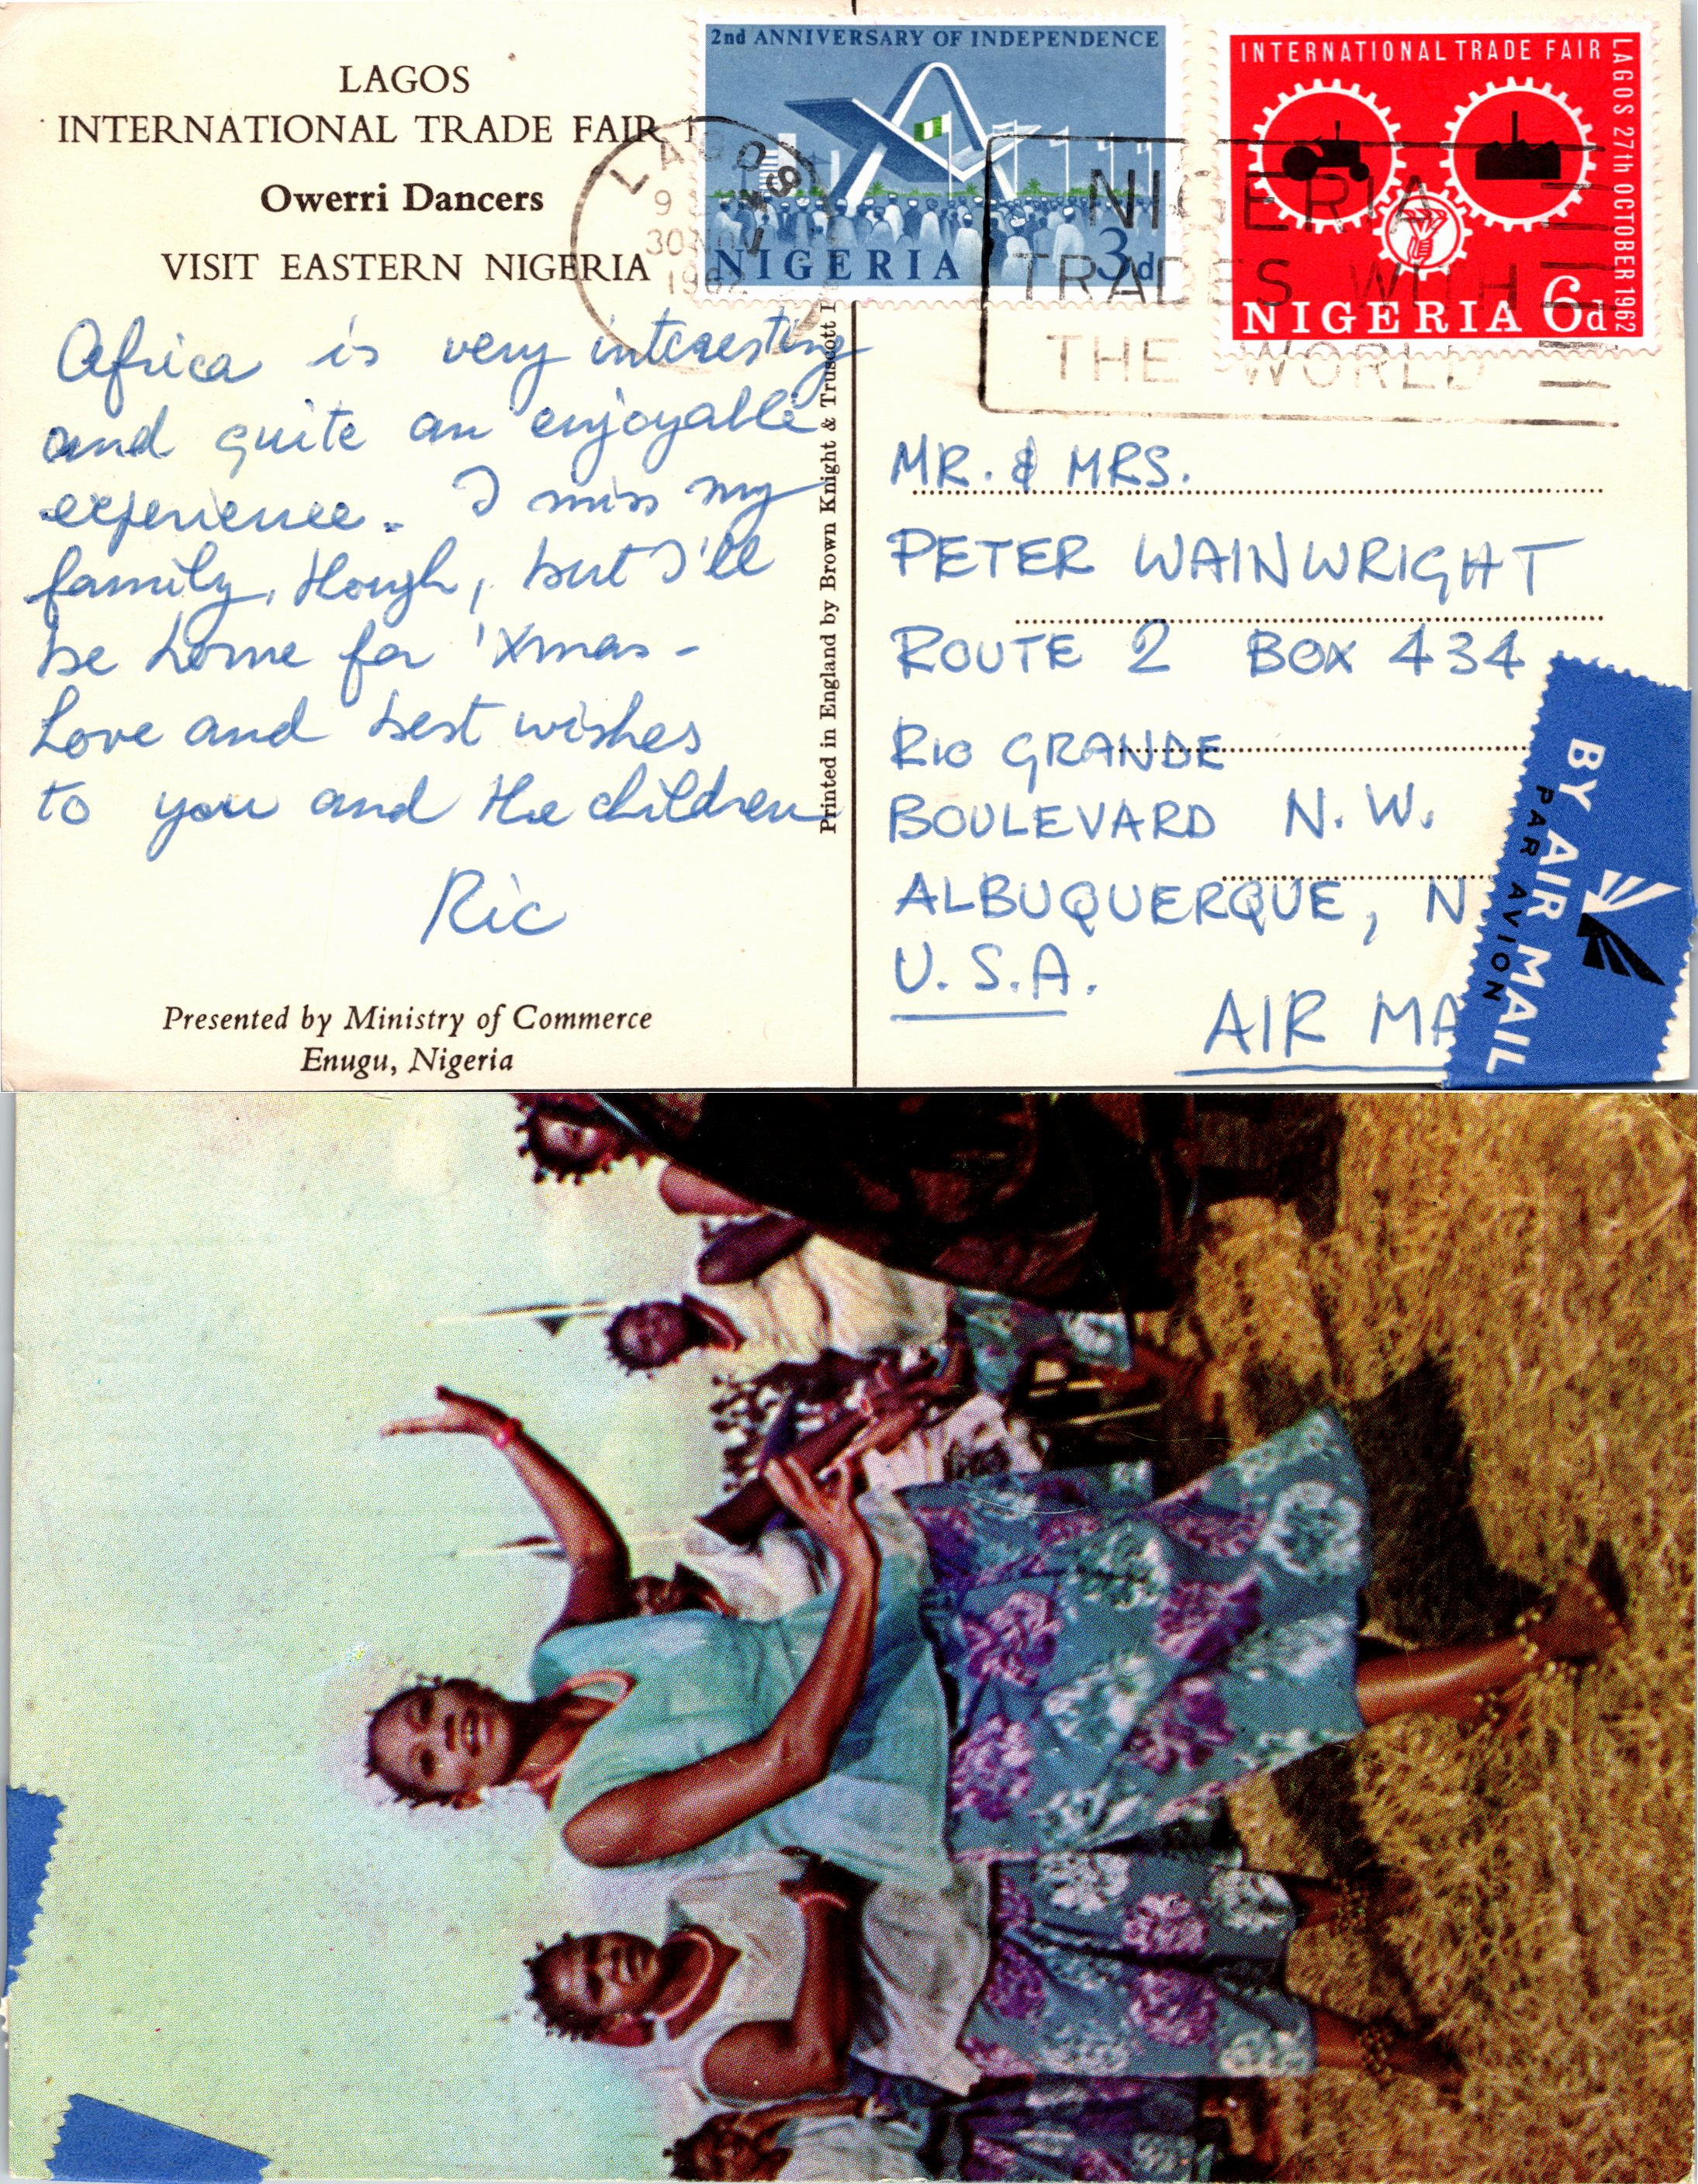 LAGOS
INTERNATIONAL TRADE FAIR
Owerri Dancers
VISIT EASTERN NIGERIA
Africa is very interesting
and quite an enjoyable
experience. I miss my
family, though, but I'll
be home for 'Xmas-
Love and best wishes
to you and the children
Ric
Presented by Ministry of Commerce
Enugu, Nigeria
Printed in England by Brown Knight & Truscott
2nd ANNIVERSARY OF INDEPENDENCE
NIGERIA 3d
INTERNATIONAL TRADE FAIR
LAGOS 27th OCTOBER 1962
NIGERIA 6d
LAGOS
30 NOV
1962
NIGERIA
TRADES WITH
THE WORLD
MR. & MRS.
PETER WAINWRIGHT
ROUTE 2 BOX 434
RIO GRANDE
BOULEVARD N.W.
ALBUQUERQUE, N
U.S.A.
AIR MA
BY AIR MAIL
PAR AVION